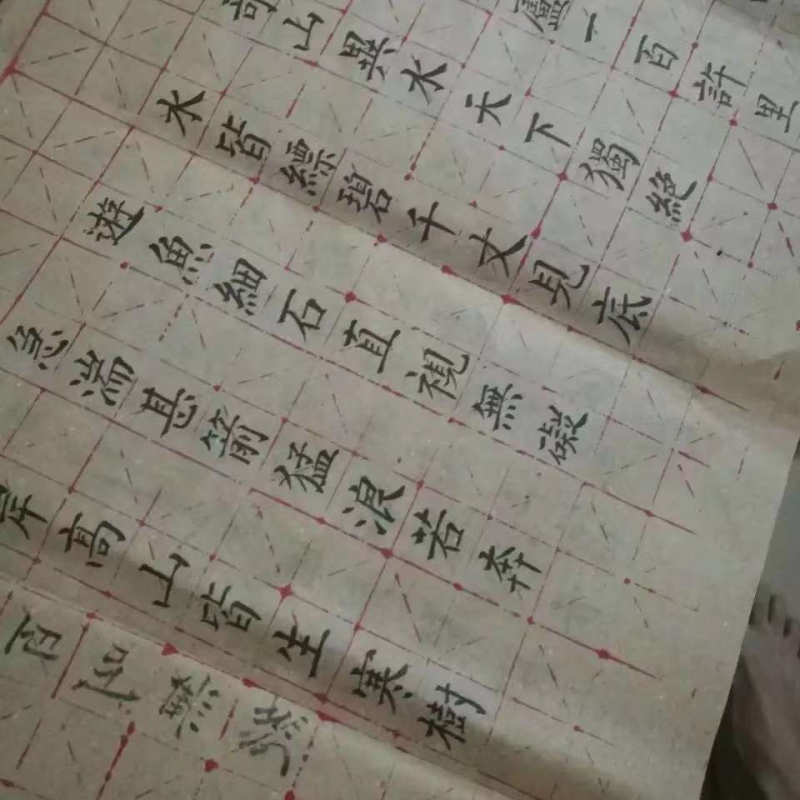 廬一百許里
奇山異水天下獨絕
水皆縹碧千丈見底
遊魚細石直視無礙
急湍甚箭猛浪若奔
岸高山皆生寒樹
百叫無